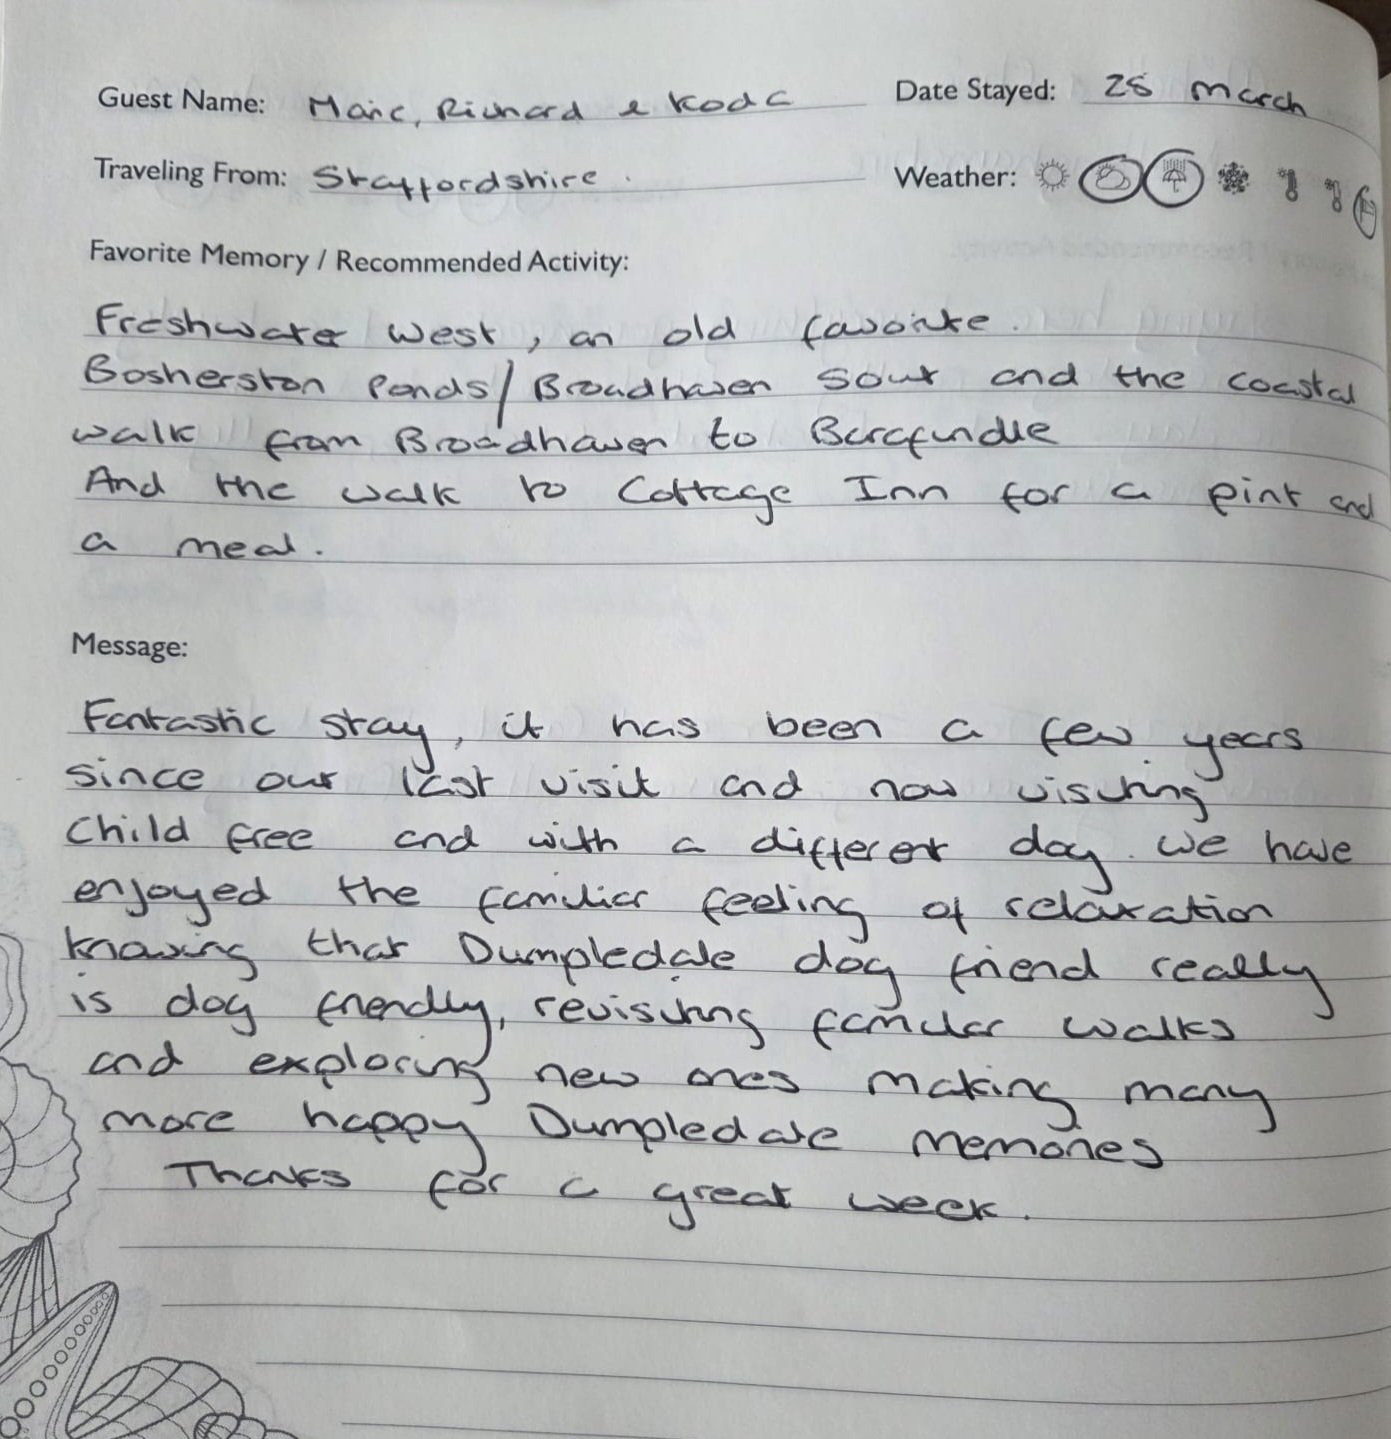 Guest Name: Marie, Richard & Koda Date Stayed: 25 March
Traveling From: Staffordshire. Weather:
Favorite Memory / Recommended Activity:
Freshwater West, an old favorite.
Bosherston Ponds/Broadhaven Sout and the coastal
walk from Broadhaven to Barafundle
And the walk to Cottage Inn for a pint and
a meal.
Message:
Fantastic stay, it has been a few years
since our last visit and now visiting
Child free and with a different dog. We have
enjoyed the familiar feeling of relaxation
knowing that Dumpledale dog friend really
is dog friendly, revisiting familar walks
and exploring new ones making many
more happy Dumpledale memories
Thanks for a great week.